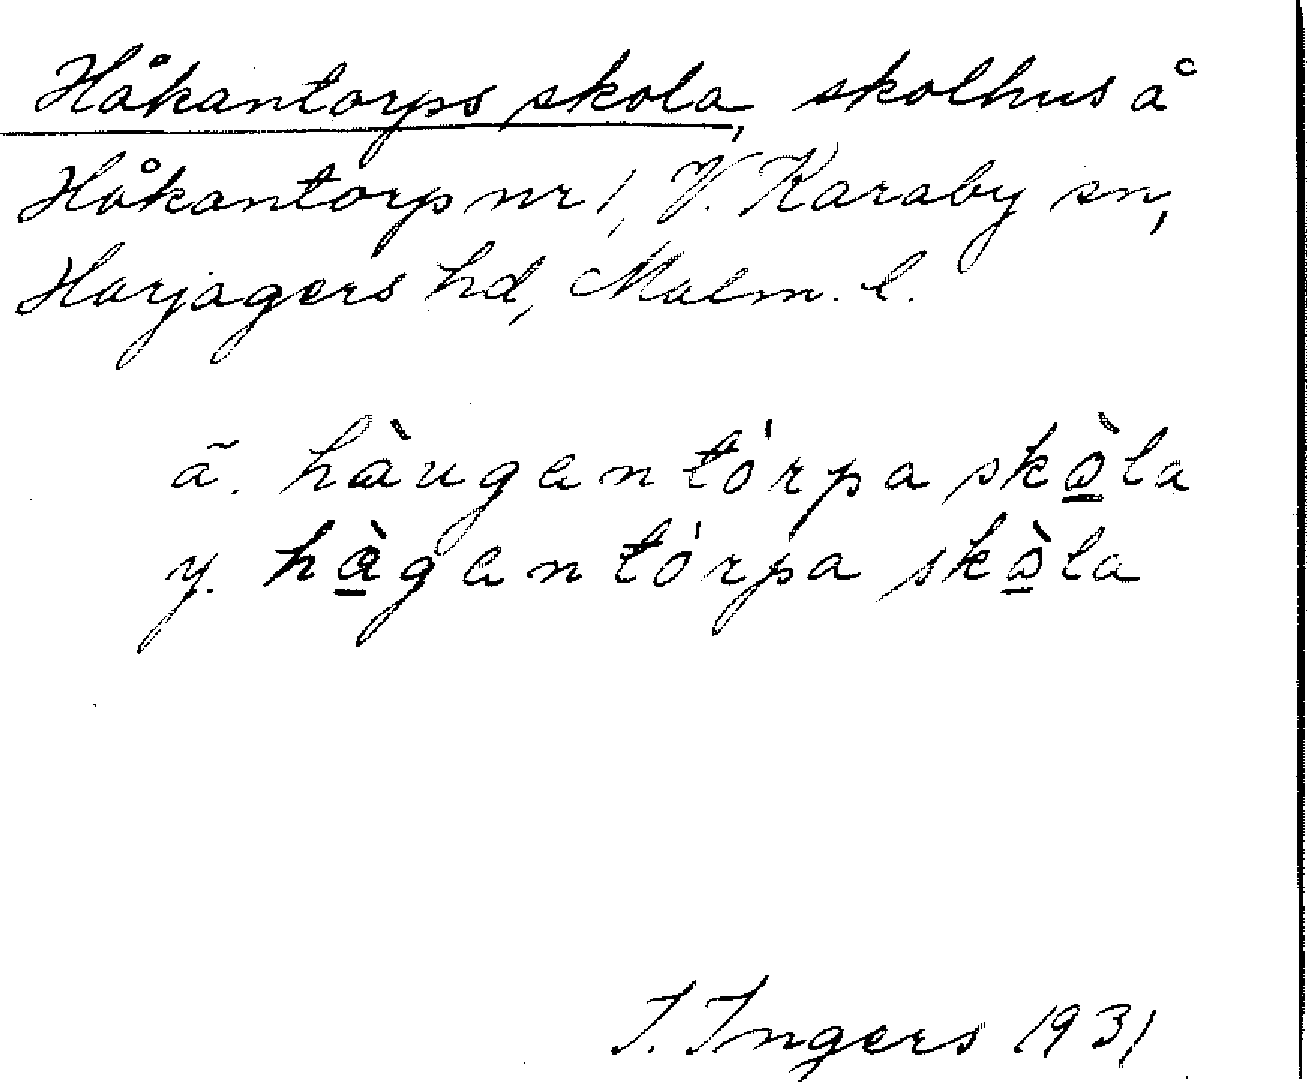 Håkantorps skola, skolhus å
Håkantorp nr 1, V. Karaby sn,
Harjagers hd, Malm. l.
ä. hàugantórpa skò̱la
y. hà̱gantórpa skò̱la
I. Ingers 1931